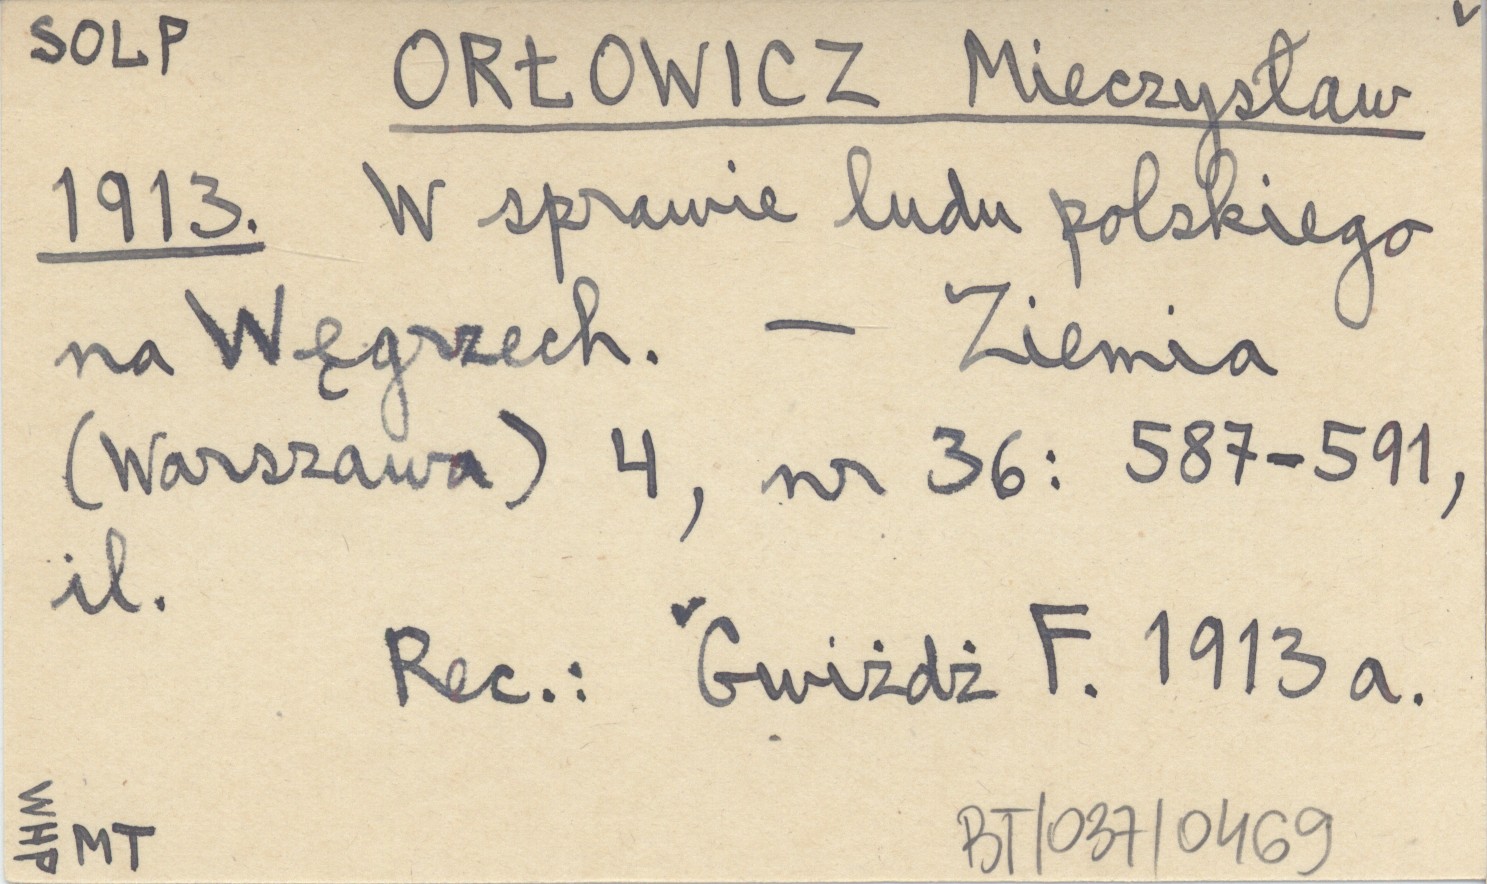 SOLP
ORŁOWICZ Mieczysław
1913. W sprawie ludu polskiego
na Węgrzech. — Ziemia
(Warszawa) 4, nr 36: 587-591,
il.
Rec.: Gwiżdż F. 1913 a.
WHP
MT
BT/037/0469